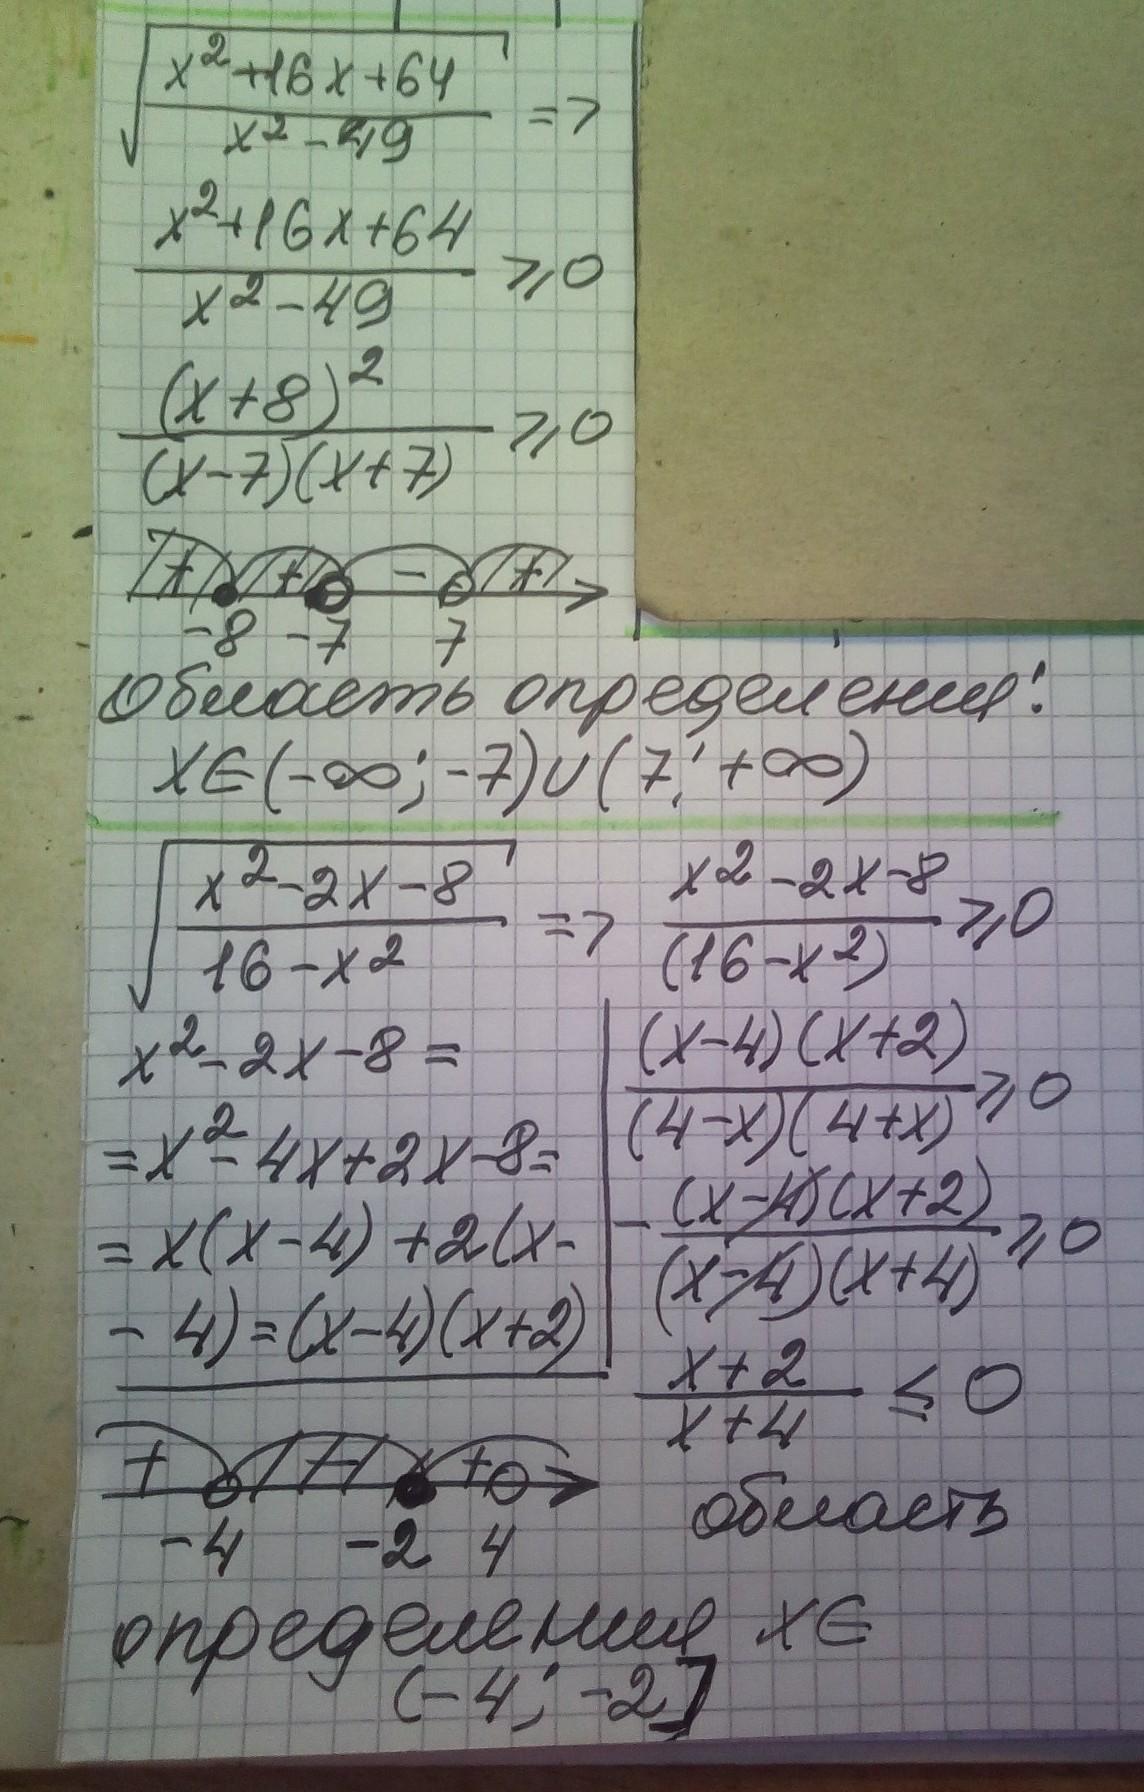 √((x²+16x+64)/(x²-49)) =>
(x²+16x+64)/(x²-49) ⩾0
(x+8)²/((x-7)(x+7)) ⩾0
+ + - +
-8 -7 7
область определения:
x∈(-∞; -7)∪(7; +∞)
√((x²-2x-8)/(16-x²)) => (x²-2x-8)/(16-x²) ⩾0
x²-2x-8=
=x²-4x+2x-8=
=x(x-4)+2(x-
-4)=(x-4)(x+2)
((x-4)(x+2))/((4-x)(4+x)) ⩾0
-((x-4)(x+2))/((x-4)(x+4)) ⩾0
(x+2)/(x+4) ≤ 0
+ - +
-4 -2 4
область
определения x∈
(-4; -2]